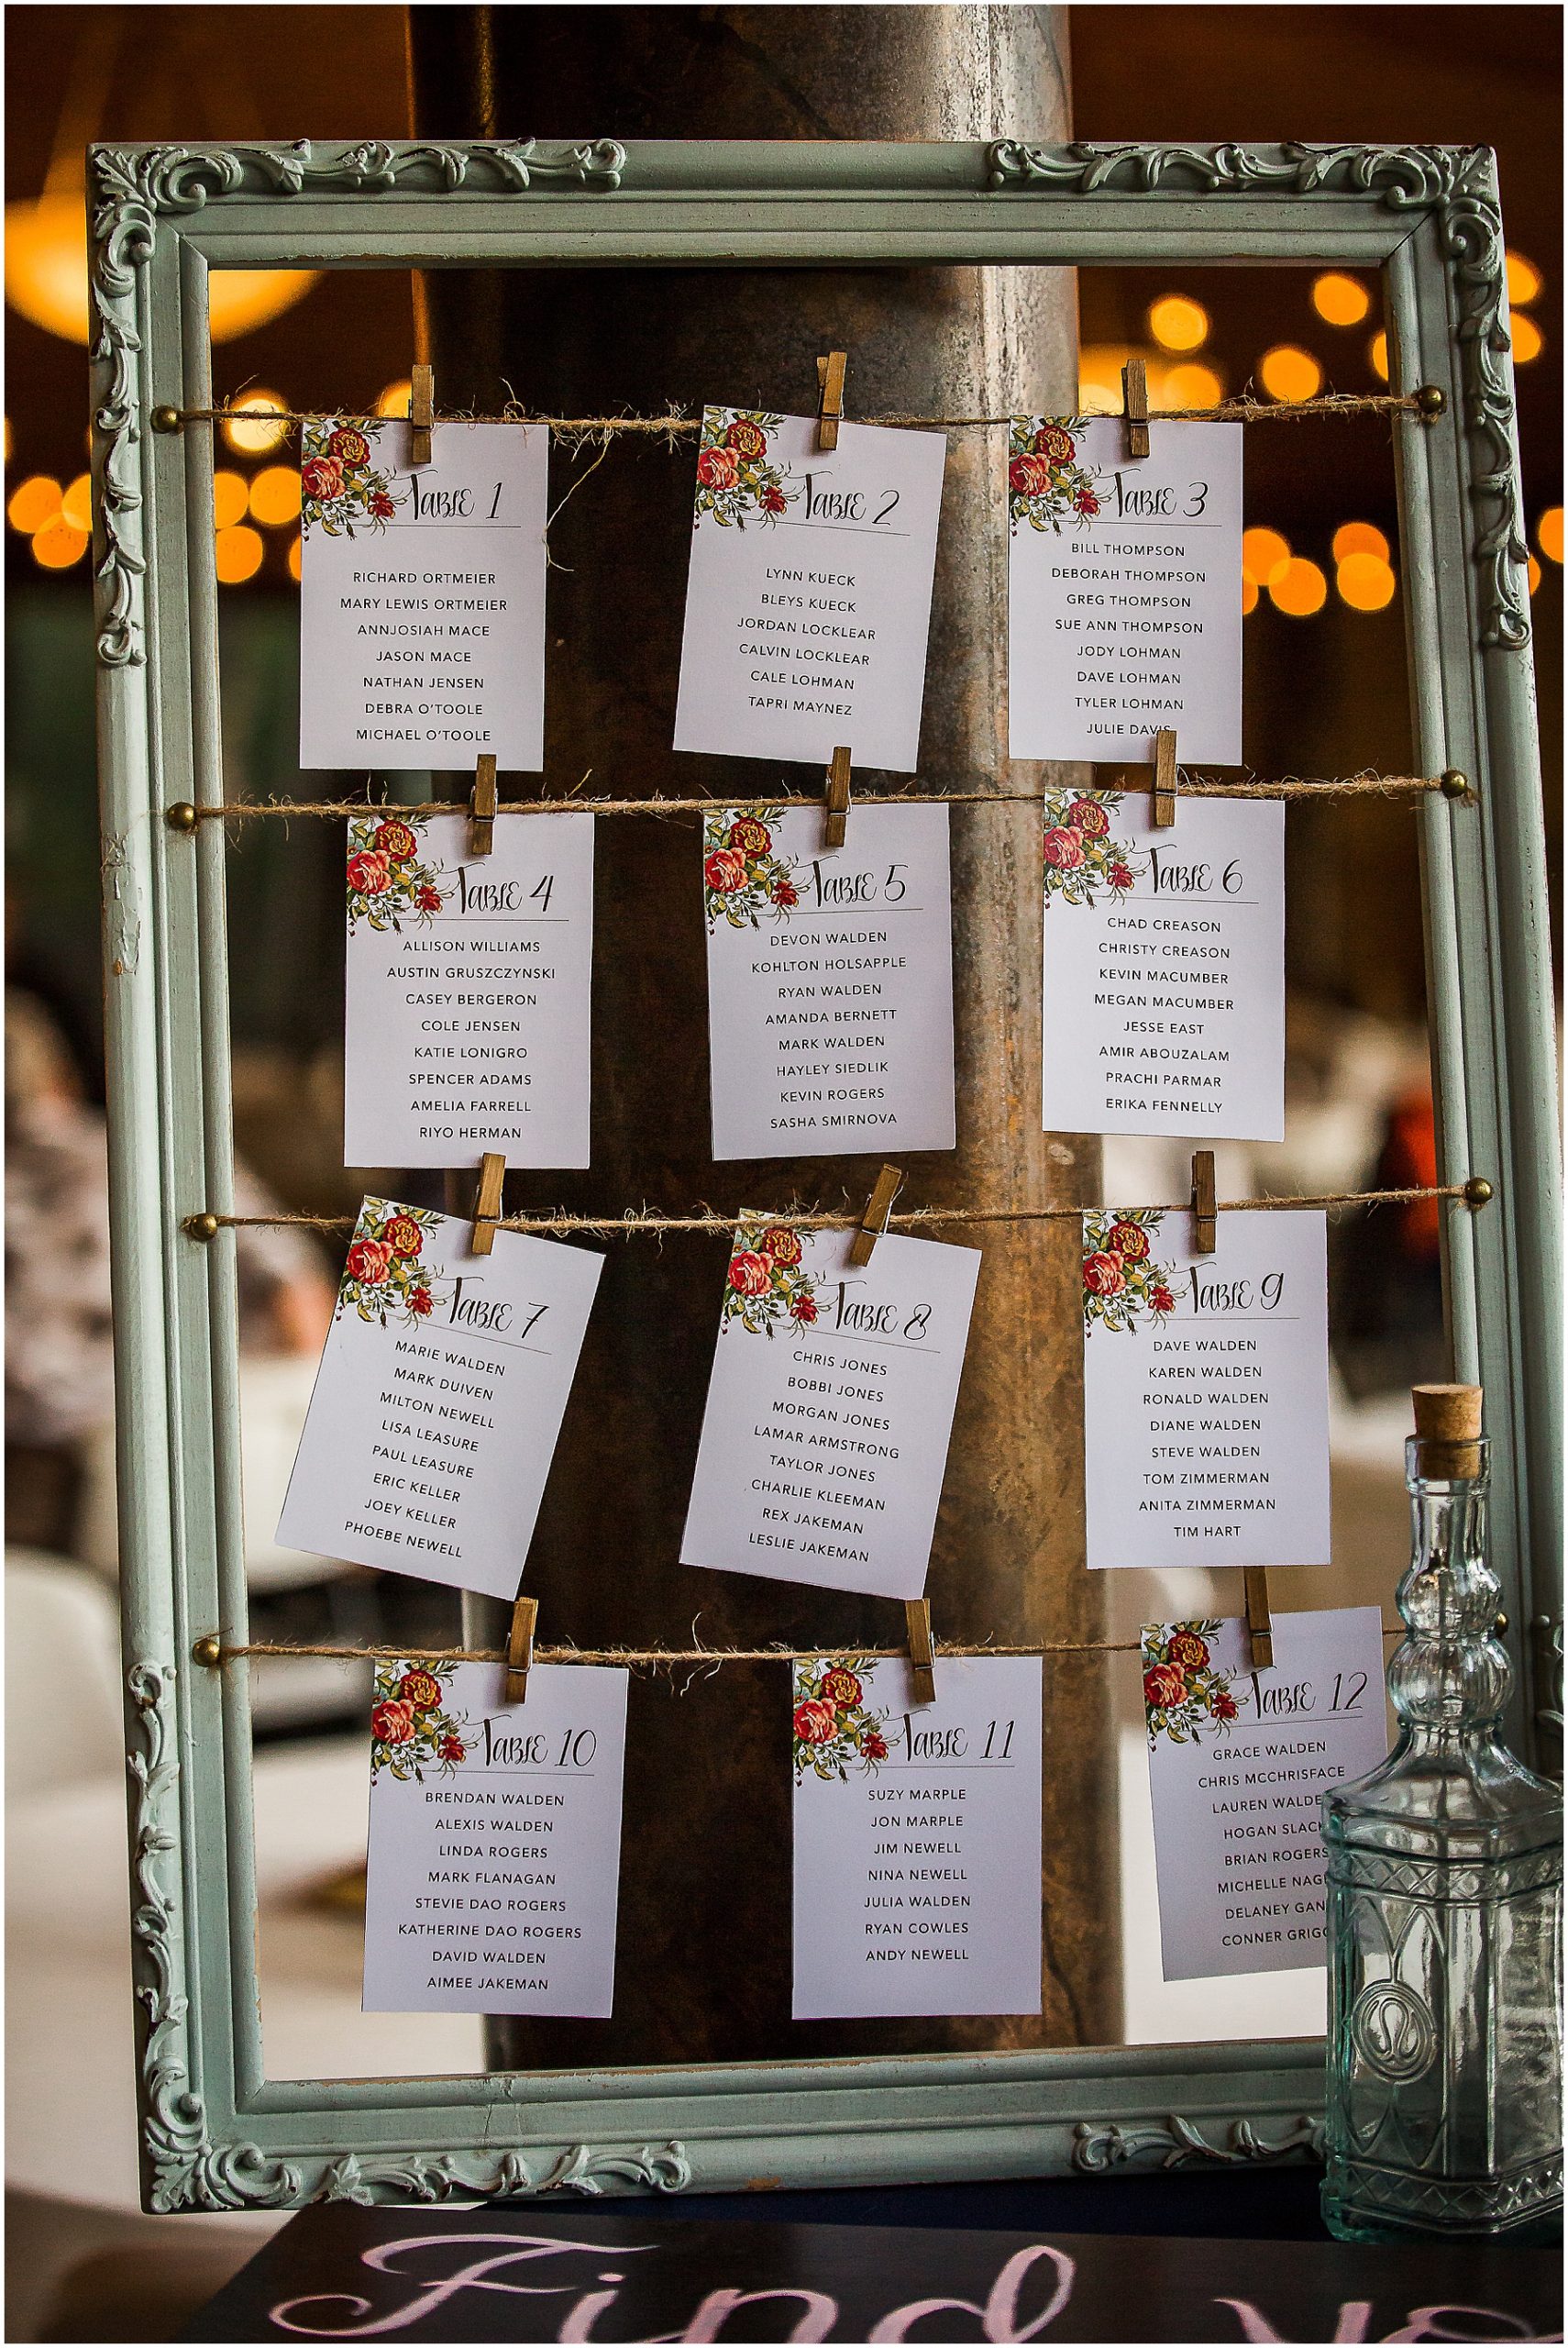 Table 1
RICHARD ORTMEIER
MARY LEWIS ORTMEIER
ANNJOSIAH MACE
JASON MACE
NATHAN JENSEN
DEBRA O'TOOLE
MICHAEL O'TOOLE
Table 2
LYNN KUECK
BLEYS KUECK
JORDAN LOCKLEAR
CALVIN LOCKLEAR
CALE LOHMAN
TAPRI MAYNEZ
Table 3
BILL THOMPSON
DEBORAH THOMPSON
GREG THOMPSON
SUE ANN THOMPSON
JODY LOHMAN
DAVE LOHMAN
TYLER LOHMAN
JULIE DAVIS
Table 4
ALLISON WILLIAMS
AUSTIN GRUSZCZYNSKI
CASEY BERGERON
COLE JENSEN
KATIE LONIGRO
SPENCER ADAMS
AMELIA FARRELL
RIYO HERMAN
Table 5
DEVON WALDEN
KOHLTON HOLSAPPLE
RYAN WALDEN
AMANDA BERNETT
MARK WALDEN
HAYLEY SIEDLIK
KEVIN ROGERS
SASHA SMIRNOVA
Table 6
CHAD CREASON
CHRISTY CREASON
KEVIN MACUMBER
MEGAN MACUMBER
JESSE EAST
AMIR ABOUZALAM
PRACHI PARMAR
ERIKA FENNELLY
Table 7
MARIE WALDEN
MARK DUIVEN
MILTON NEWELL
LISA LEASURE
PAUL LEASURE
ERIC KELLER
JOEY KELLER
PHOEBE NEWELL
Table 8
CHRIS JONES
BOBBI JONES
MORGAN JONES
LAMAR ARMSTRONG
TAYLOR JONES
CHARLIE KLEEMAN
REX JAKEMAN
LESLIE JAKEMAN
Table 9
DAVE WALDEN
KAREN WALDEN
RONALD WALDEN
DIANE WALDEN
STEVE WALDEN
TOM ZIMMERMAN
ANITA ZIMMERMAN
TIM HART
Table 10
BRENDAN WALDEN
ALEXIS WALDEN
LINDA ROGERS
MARK FLANAGAN
STEVIE DAO ROGERS
KATHERINE DAO ROGERS
DAVID WALDEN
AIMEE JAKEMAN
Table 11
SUZY MARPLE
JON MARPLE
JIM NEWELL
NINA NEWELL
JULIA WALDEN
RYAN COWLES
ANDY NEWELL
Table 12
GRACE WALDEN
CHRIS MCCHRISFACE
LAUREN
HOGAN
BRIAN ROGERS
MICHELLE
DELANEY
CONNER
Find